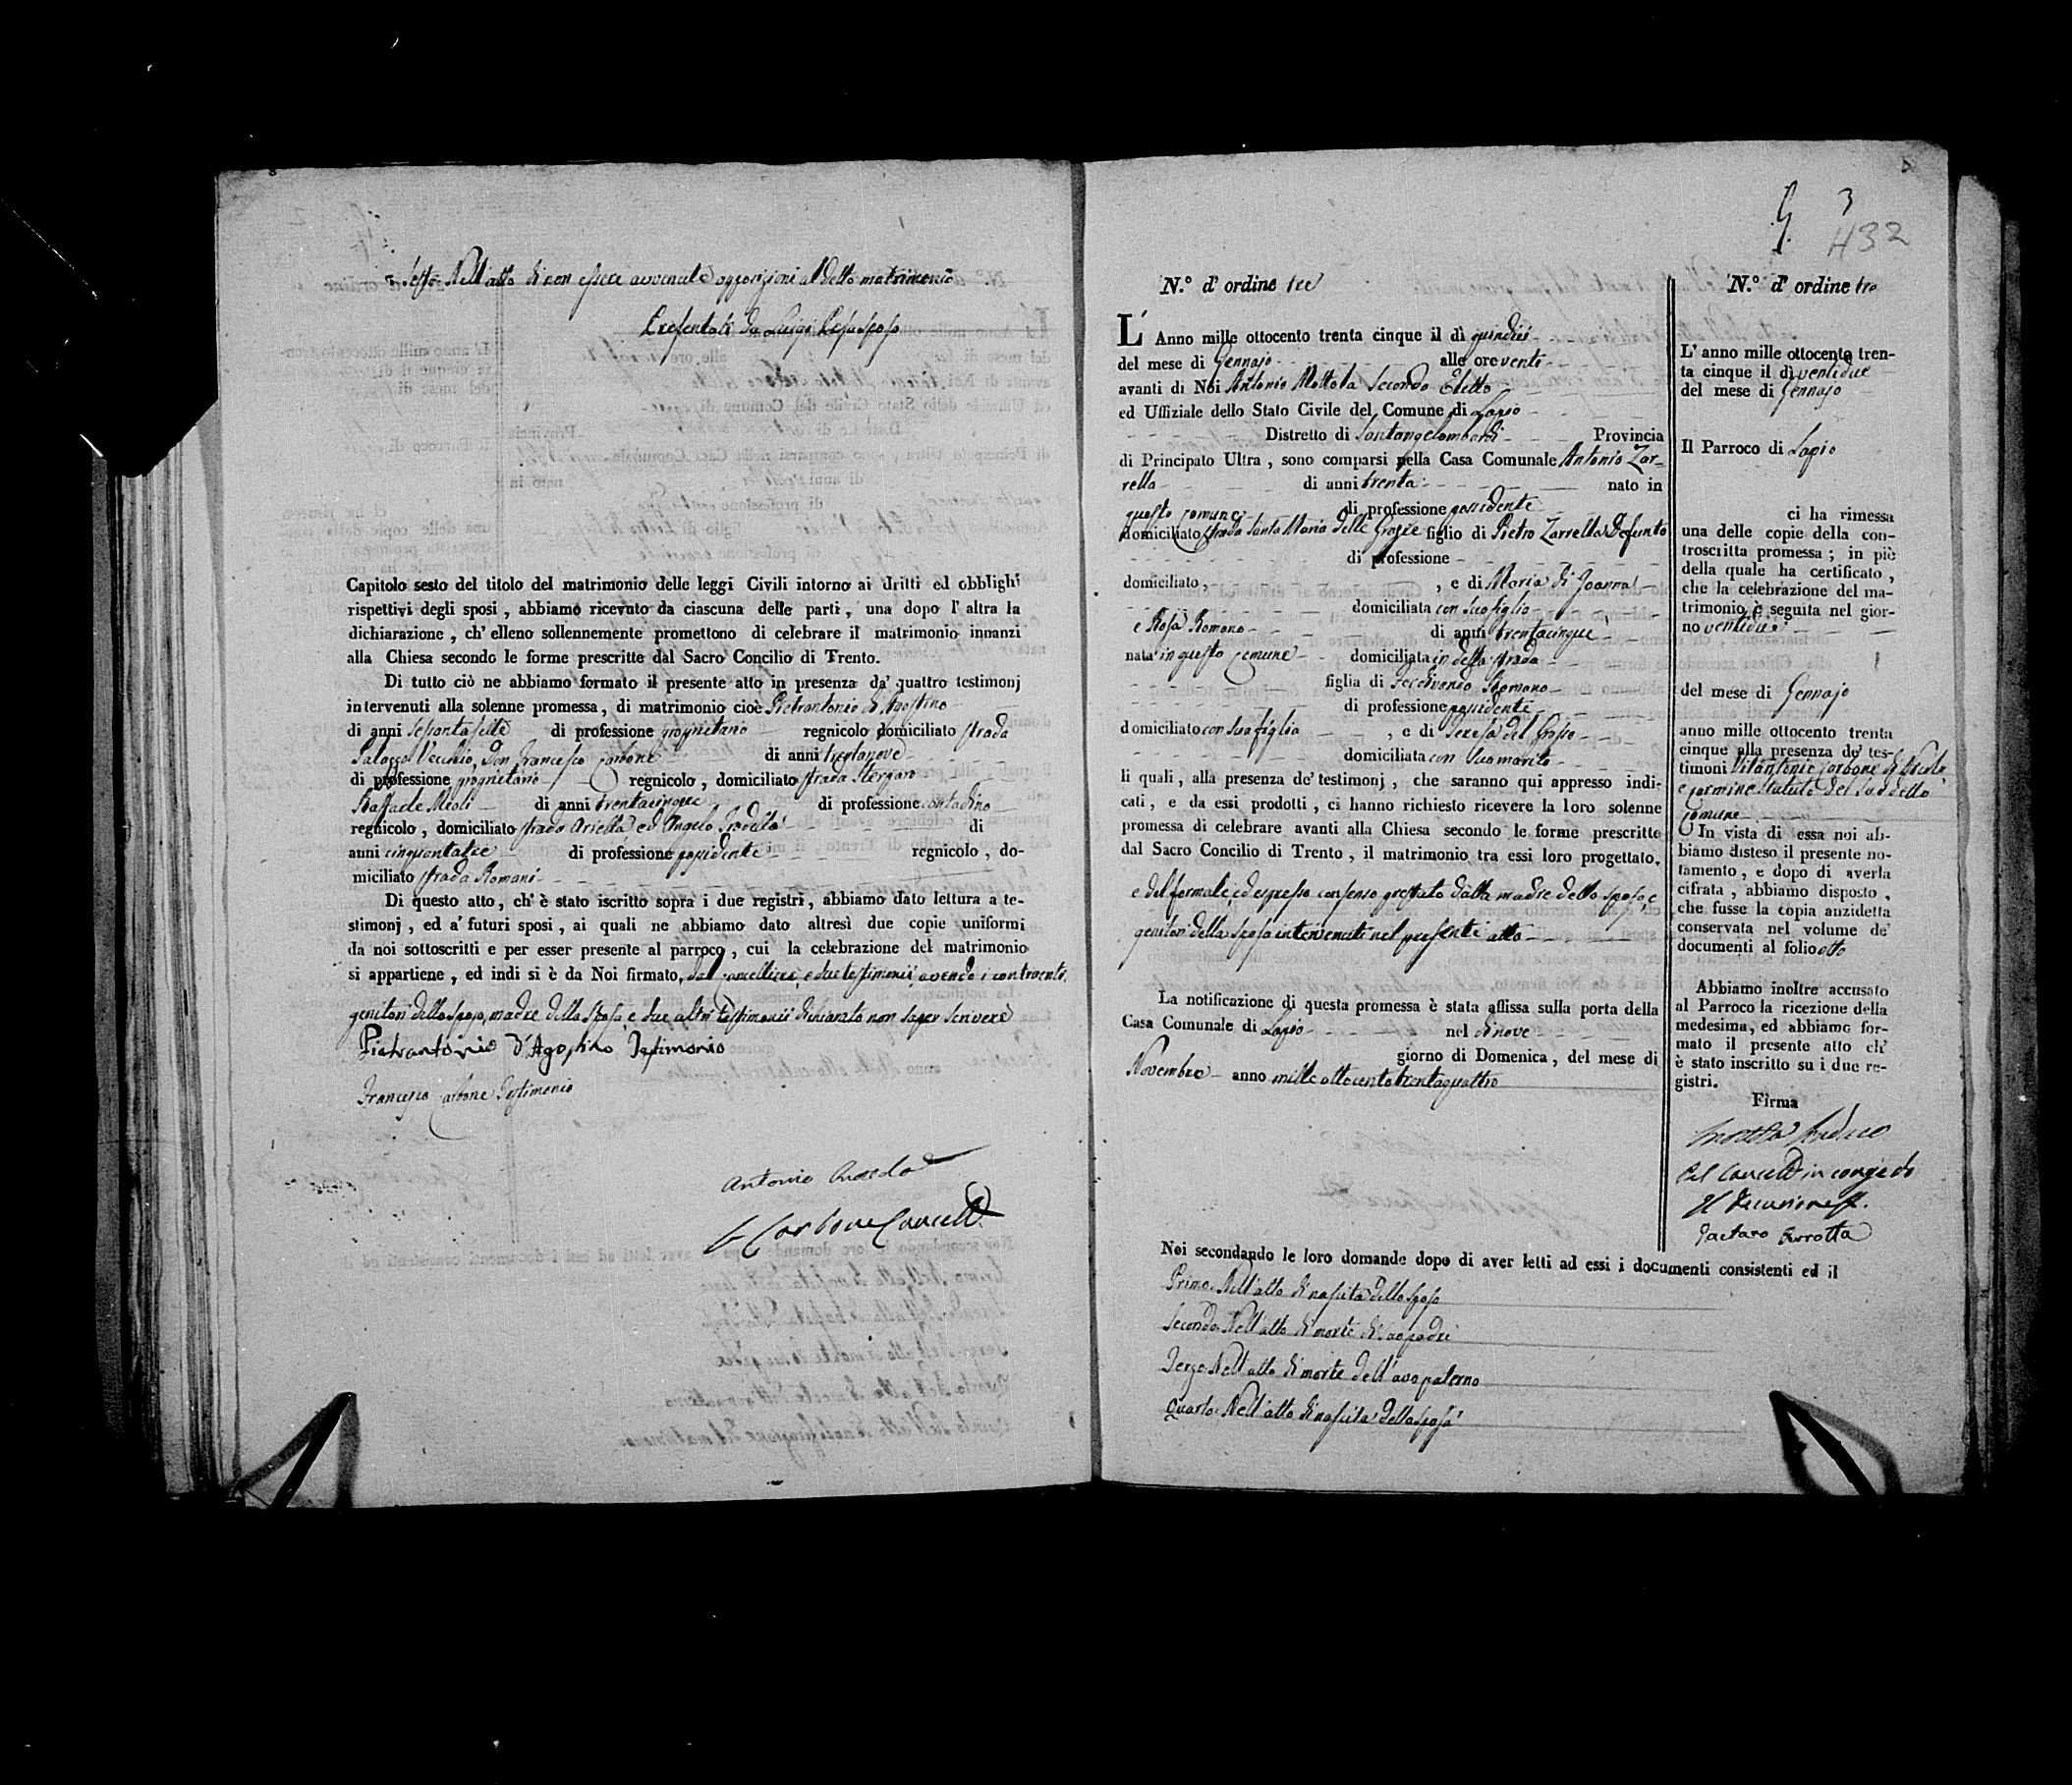 Sesto Nell'atto di non essere avvenute opposizioni al detto matrimonio
Presentati da Luigi
Capitolo sesto del titolo del matrimonio delle leggi Civili intorno ai dritti ed obblighi
rispettivi degli sposi, abbiamo ricevuto da ciascuna delle parti, una dopo l'altra la
dichiarazione, ch'elleno sollennemente promettono di celebrare il matrimonio innanzi
alla Chiesa secondo le forme prescritte dal Sacro Concilio di Trento.
Di tutto ciò ne abbiamo formato il presente atto in presenza da' quattro testimonj
intervenuti alla solenne promessa, di matrimonio cioè Pietrantonio d'Agostino
di anni sessantasette di professione proprietario regnicolo domiciliato strada
Palazzo Vecchio, Don Francesco Carbone di anni trentanove
di professione proprietario regnicolo, domiciliato strada
Raffaele Meoli di anni trentacinque di professione contadino
regnicolo, domiciliato strada Ariella ed Angelo di
anni di professione possidente regnicolo, do-
miciliato strada Romani
Di questo atto, ch'è stato iscritto sopra i due registri, abbiamo dato lettura a te-
stimonj, ed a' futuri sposi, ai quali ne abbiamo dato altresì due copie uniformi
da noi sottoscritti e per esser presente al parroco, cui la celebrazione del matrimonio
si appartiene, ed indi si è da Noi firmato, dal Cancelliere, e due testimonii avendo i contraenti
genitori dello sposo, madre della sposa, e due altri testimonii dichiarato non saper scrivere
Pietrantonio d'Agostino Testimonio
Francesco Carbone Testimonio
Antonio
Carbone Cancell.
3
432
N.° d'ordine tre
L'Anno mille ottocento trenta cinque il dì quindici
del mese di Gennajo alle ore venti
avanti di Noi Antonio Mottola Secondo Eletto
ed Uffiziale dello Stato Civile del Comune di Lapio
Distretto di Santangelombardi Provincia
di Principato Ultra, sono comparsi nella Casa Comunale Antonio Zar-
rella di anni trenta nato in
questo comune di professione possidente
domiciliato strada Santa Maria delle Grazie figlio di Pietro Zarrella Defunto
di professione
domiciliato, , e di Maria di Joanna
domiciliata con suo figlio
e Rosa Romano di anni trentacinque
nata in questo comune domiciliata in detta strada
figlia di Romano
di professione possidente
domiciliato con sua figlia , e di Teresa del Grosso
domiciliata con suo marito
li quali, alla presenza de' testimonj, che saranno qui appresso indi-
cati, e da essi prodotti, ci hanno richiesto ricevere la loro solenne
promessa di celebrare avanti alla Chiesa secondo le forme prescritte
dal Sacro Concilio di Trento, il matrimonio tra essi loro progettato.
e del formale, ed espresso consenso prestato dalla madre dello sposo, e
genitori della sposa intervenuti nel presente atto
La notificazione di questa promessa è stata affissa sulla porta della
Casa Comunale di Lapio nel dì nove
giorno di Domenica, del mese di
Novembre anno mille ottocento trentaquattro
N.° d'ordine tre
L'anno mille ottocento tren-
ta cinque il dì ventidue
del mese di Gennajo
Il Parroco di Lapio
ci ha rimessa
una delle copie della con-
troscritta promessa; in piè
della quale ha certificato,
che la celebrazione del ma-
trimonio è seguita nel gior-
no ventidue
del mese di Gennajo
anno mille ottocento trenta
cinque alla presenza de' tes-
timoni Vitantonio Carbone di Nicola,
e Carmine del suddetto
Comune
In vista di essa noi ab-
biamo disteso il presente no-
tamento, e dopo di averla
cifrata, abbiamo disposto,
che fusse la copia anzidetta
conservata nel volume de'
documenti al folio otto
Abbiamo inoltre accusato
al Parroco la ricezione della
medesima, ed abbiamo for-
mato il presente atto ch'
è stato inscritto su i due re-
gistri.
Firma
Pel Cancell. in congedo
Il Decurione ff.
Gaetano
Noi secondando le loro domande dopo di aver letti ad essi i documenti consistenti ed il
Primo. Nell'atto di nascita dello sposo
Secondo. Nell'atto di morte di suo padre
Terzo. Nell'atto di morte dell'avo paterno
Quarto. Nell'atto di nascita della sposa